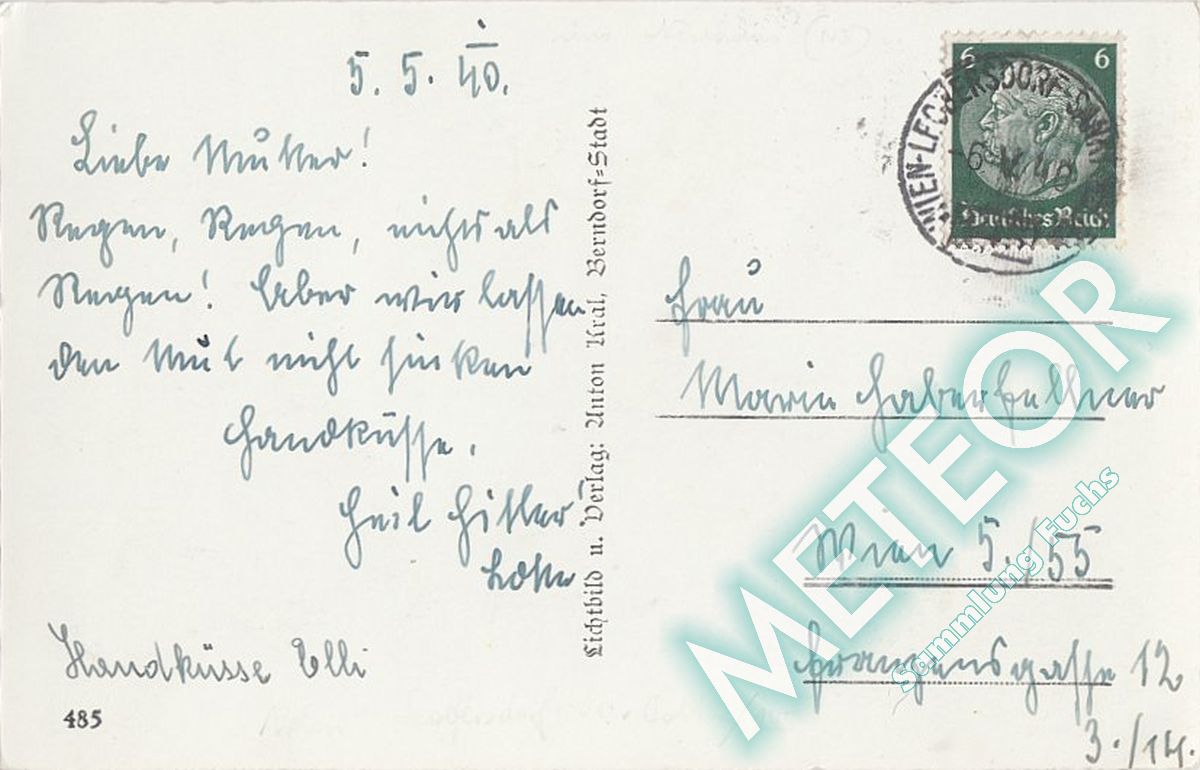 5. 5. 40.
Liebe Mutter!
Regen, Regen, nichts als
Regen! Aber wir lassen
den Mut nicht sinken
Handküsse.
Heil Hitler
Lotte
Handküsse Elli
485
Lichtbild u. Verlag: Anton Kral, Berndorf-Stadt
6 6
Deutsches Reich
-6. V. 40
Frau
Marie Haberfellner
Wien 5./55
Franzensgasse 12
3./14.
METEOR
Sammlung Fuchs